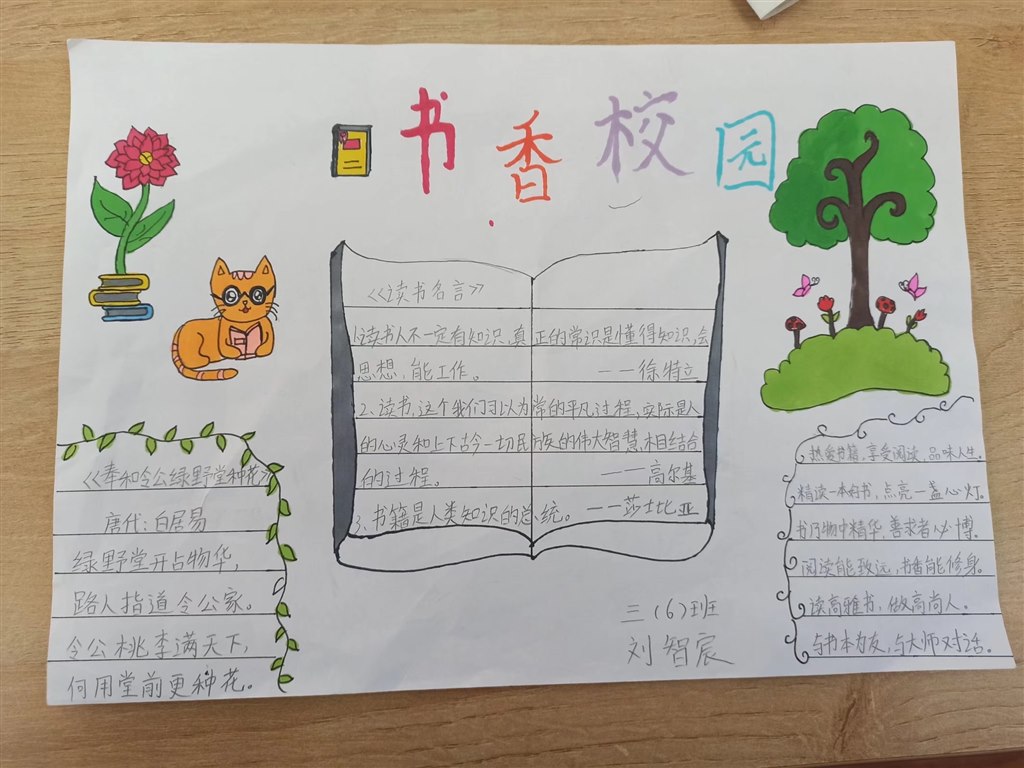 书香校园
《读书名言》
1.读书人不一定有知识,真正的常识是懂得知识,会
思想,能工作。 ——徐特立
2、读书,这个我们习以为常的平凡过程,实际是人
的心灵和上下古今一切民族的伟大智慧,相结合
的过程。 ——高尔基
3、书籍是人类知识的总统。——莎士比亚
《奉和令公绿野堂种花》
唐代:白居易
绿野堂开占物华,
路人指道令公家。
令公桃李满天下,
何用堂前更种花。
热爱书籍,享受阅读,品味人生。
精读一本好书,点亮一盏心灯。
书乃物中精华,善求者必博。
阅读能致远,书香能修身。
读高雅书,做高尚人。
与书本为友,与大师对话。
三(6)班
刘智宸